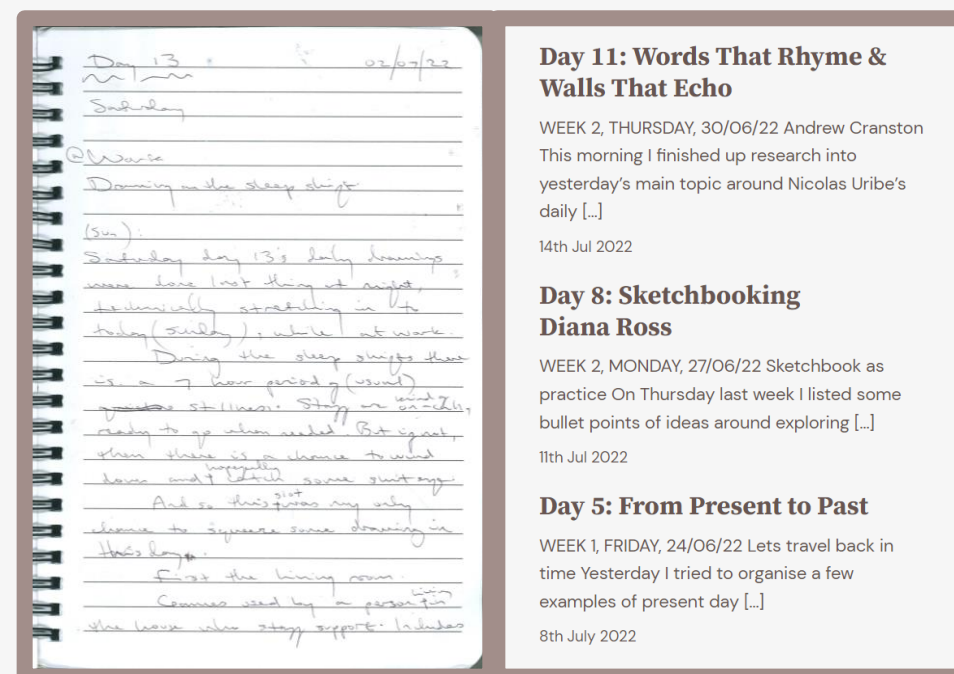 Day 13 02/07/22
Saturday
@Work
Drawing on the sleep shift
(Sun):
Saturday day 13's daily drawings
were done last thing at night,
technically stretching in to
today (Sunday), while at work.
During the sleep shifts there
is a 7 hour period of (usual)
stillness. Staff are on
ready to go when needed. But if not,
then there is a chance to wind
down and hopefully catch some shut eye.
And so this slot was my only
chance to squeeze some drawing in
this day.
First the living room.
used by a person living in
the house who staff support. Includes
Day 11: Words That Rhyme &
Walls That Echo
WEEK 2, THURSDAY, 30/06/22 Andrew Cranston
This morning I finished up research into
yesterday’s main topic around Nicolas Uribe’s
daily [...]
14th Jul 2022
Day 8: Sketchbooking
Diana Ross
WEEK 2, MONDAY, 27/06/22 Sketchbook as
practice On Thursday last week I listed some
bullet points of ideas around exploring [...]
11th Jul 2022
Day 5: From Present to Past
WEEK 1, FRIDAY, 24/06/22 Lets travel back in
time Yesterday I tried to organise a few
examples of present day [...]
8th July 2022